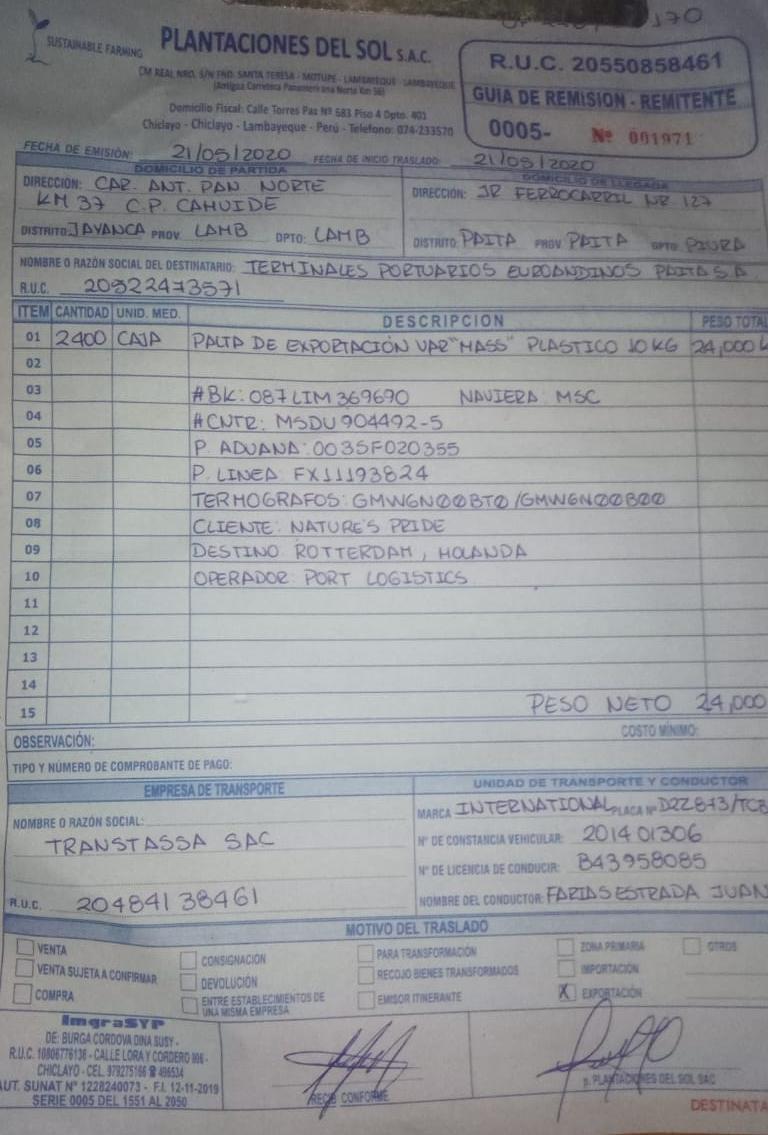 170
SUSTAINABLE FARMING
PLANTACIONES DEL SOL S.A.C.
CM REAL NRO. S/N FND. SANTA TERESA - MOTUPE - LAMBAYEQUE - LAMBAYEQUE
(Antigua Carretera Panamericana Norte Km 56)
Domicilio Fiscal: Calle Torres Paz Nº 583 Piso 4 Dpto. 401
Chiclayo - Chiclayo - Lambayeque - Perú - Telefono: 074-233570
R.U.C. 20550858461
GUIA DE REMISION - REMITENTE
0005- Nº 001971
FECHA DE EMISIÓN: 21/05/2020 FECHA DE INICIO TRASLADO: 21/05/2020
DOMICILIO DE PARTIDA
DIRECCIÓN: CAR. ANT. PAN. NORTE
KM 37 C.P. CAHUIDE
DISTRITO: JAYANCA PROV. LAMB DPTO: LAMB
DOMICILIO DE LLEGADA
DIRECCIÓN: JR FERROCARRIL NR 127
DISTRITO: PAITA PROV. PAITA DPTO. PIURA
NOMBRE O RAZÓN SOCIAL DEL DESTINATARIO: TERMINALES PORTUARIOS EUROANDINOS PAITA S.A.
R.U.C. 20522473571
ITEM CANTIDAD UNID. MED. DESCRIPCION PESO TOTAL
01 2400 CAJA PALTA DE EXPORTACIÓN VAR "HASS" PLASTICO 10 KG 24,000 K
02
03 #BK: 087LIM369690 NAVIERA: MSC
04 #CNTR: MSDU 904492-5
05 P. ADUANA: 0035F020355
06 P. LINEA FX11193824
07 TERMOGRAFOS: GMWGN00BT0 /GMWGN00B00
08 CLIENTE: NATURE'S PRIDE
09 DESTINO ROTTERDAM, HOLANDA
10 OPERADOR: PORT LOGISTICS
11
12
13
14
15 PESO NETO 24,000
OBSERVACIÓN:
COSTO MÍNIMO:
TIPO Y NÚMERO DE COMPROBANTE DE PAGO:
EMPRESA DE TRANSPORTE
NOMBRE O RAZÓN SOCIAL:
TRANSTASSA SAC
R.U.C. 20484138461
UNIDAD DE TRANSPORTE Y CONDUCTOR
MARCA INTERNATIONAL PLACA Nº D2Z873/TCB
Nº DE CONSTANCIA VEHICULAR: 201401306
Nº DE LICENCIA DE CONDUCIR: B43958085
NOMBRE DEL CONDUCTOR: FARIAS ESTRADA JUAN
MOTIVO DEL TRASLADO
VENTA
VENTA SUJETA A CONFIRMAR
COMPRA
CONSIGNACIÓN
DEVOLUCIÓN
ENTRE ESTABLECIMIENTOS DE
UNA MISMA EMPRESA
PARA TRANSFORMACIÓN
RECOJO BIENES TRANSFORMADOS
EMISOR ITINERANTE
ZONA PRIMARIA
IMPORTACIÓN
X EXPORTACIÓN
OTROS
ImgraSYP
DE: BURGA CORDOVA DINA SUSY -
R.U.C. 10806776136 - CALLE LORA Y CORDERO 996 -
CHICLAYO - CEL 979275166 ☎ 496534
AUT. SUNAT Nº 1228240073 - F.I. 12-11-2019
SERIE 0005 DEL 1551 AL 2050
RECIBÍ CONFORME
p. PLANTACIONES DEL SOL SAC
DESTINATA